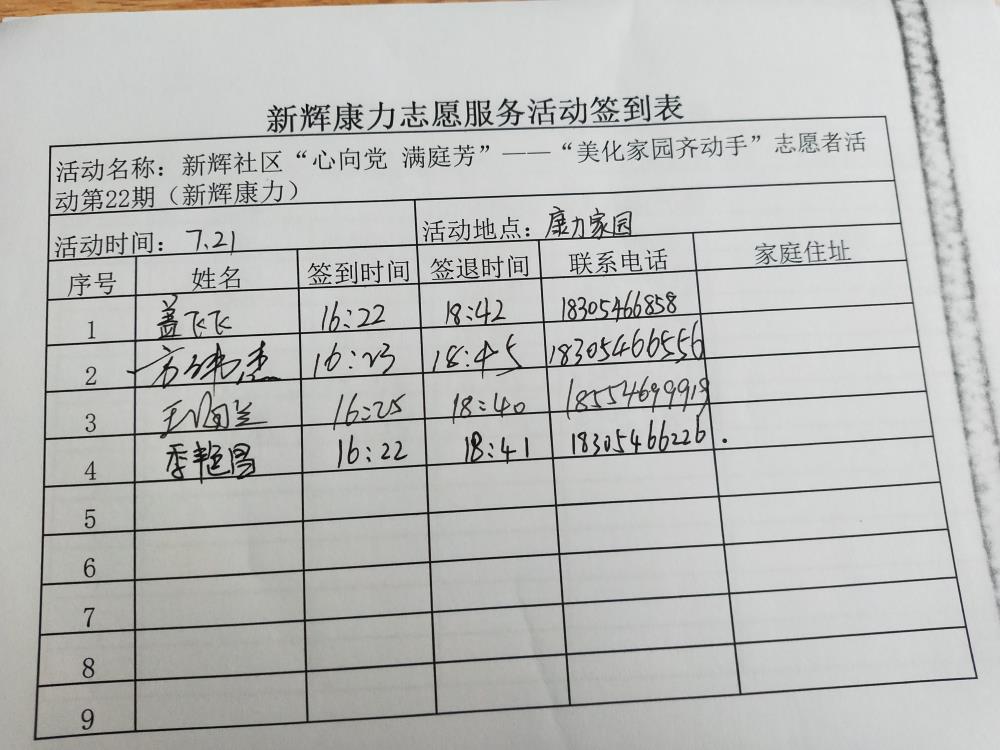 新辉康力志愿服务活动签到表
活动名称：新辉社区“心向党 满庭芳”——“美化家园齐动手”志愿者活
动第22期（新辉康力）
活动时间：7.21 活动地点：康力家园
序号 姓名 签到时间 签退时间 联系电话 家庭住址
1 盖飞飞 16:22 18:42 18305466858
2 方伟杰 16:23 18:45 18305466556
3 王 兰 16:25 18:40 18554699919
4 季艳昌 16:22 18:41 18305466226.
5
6
7
8
9